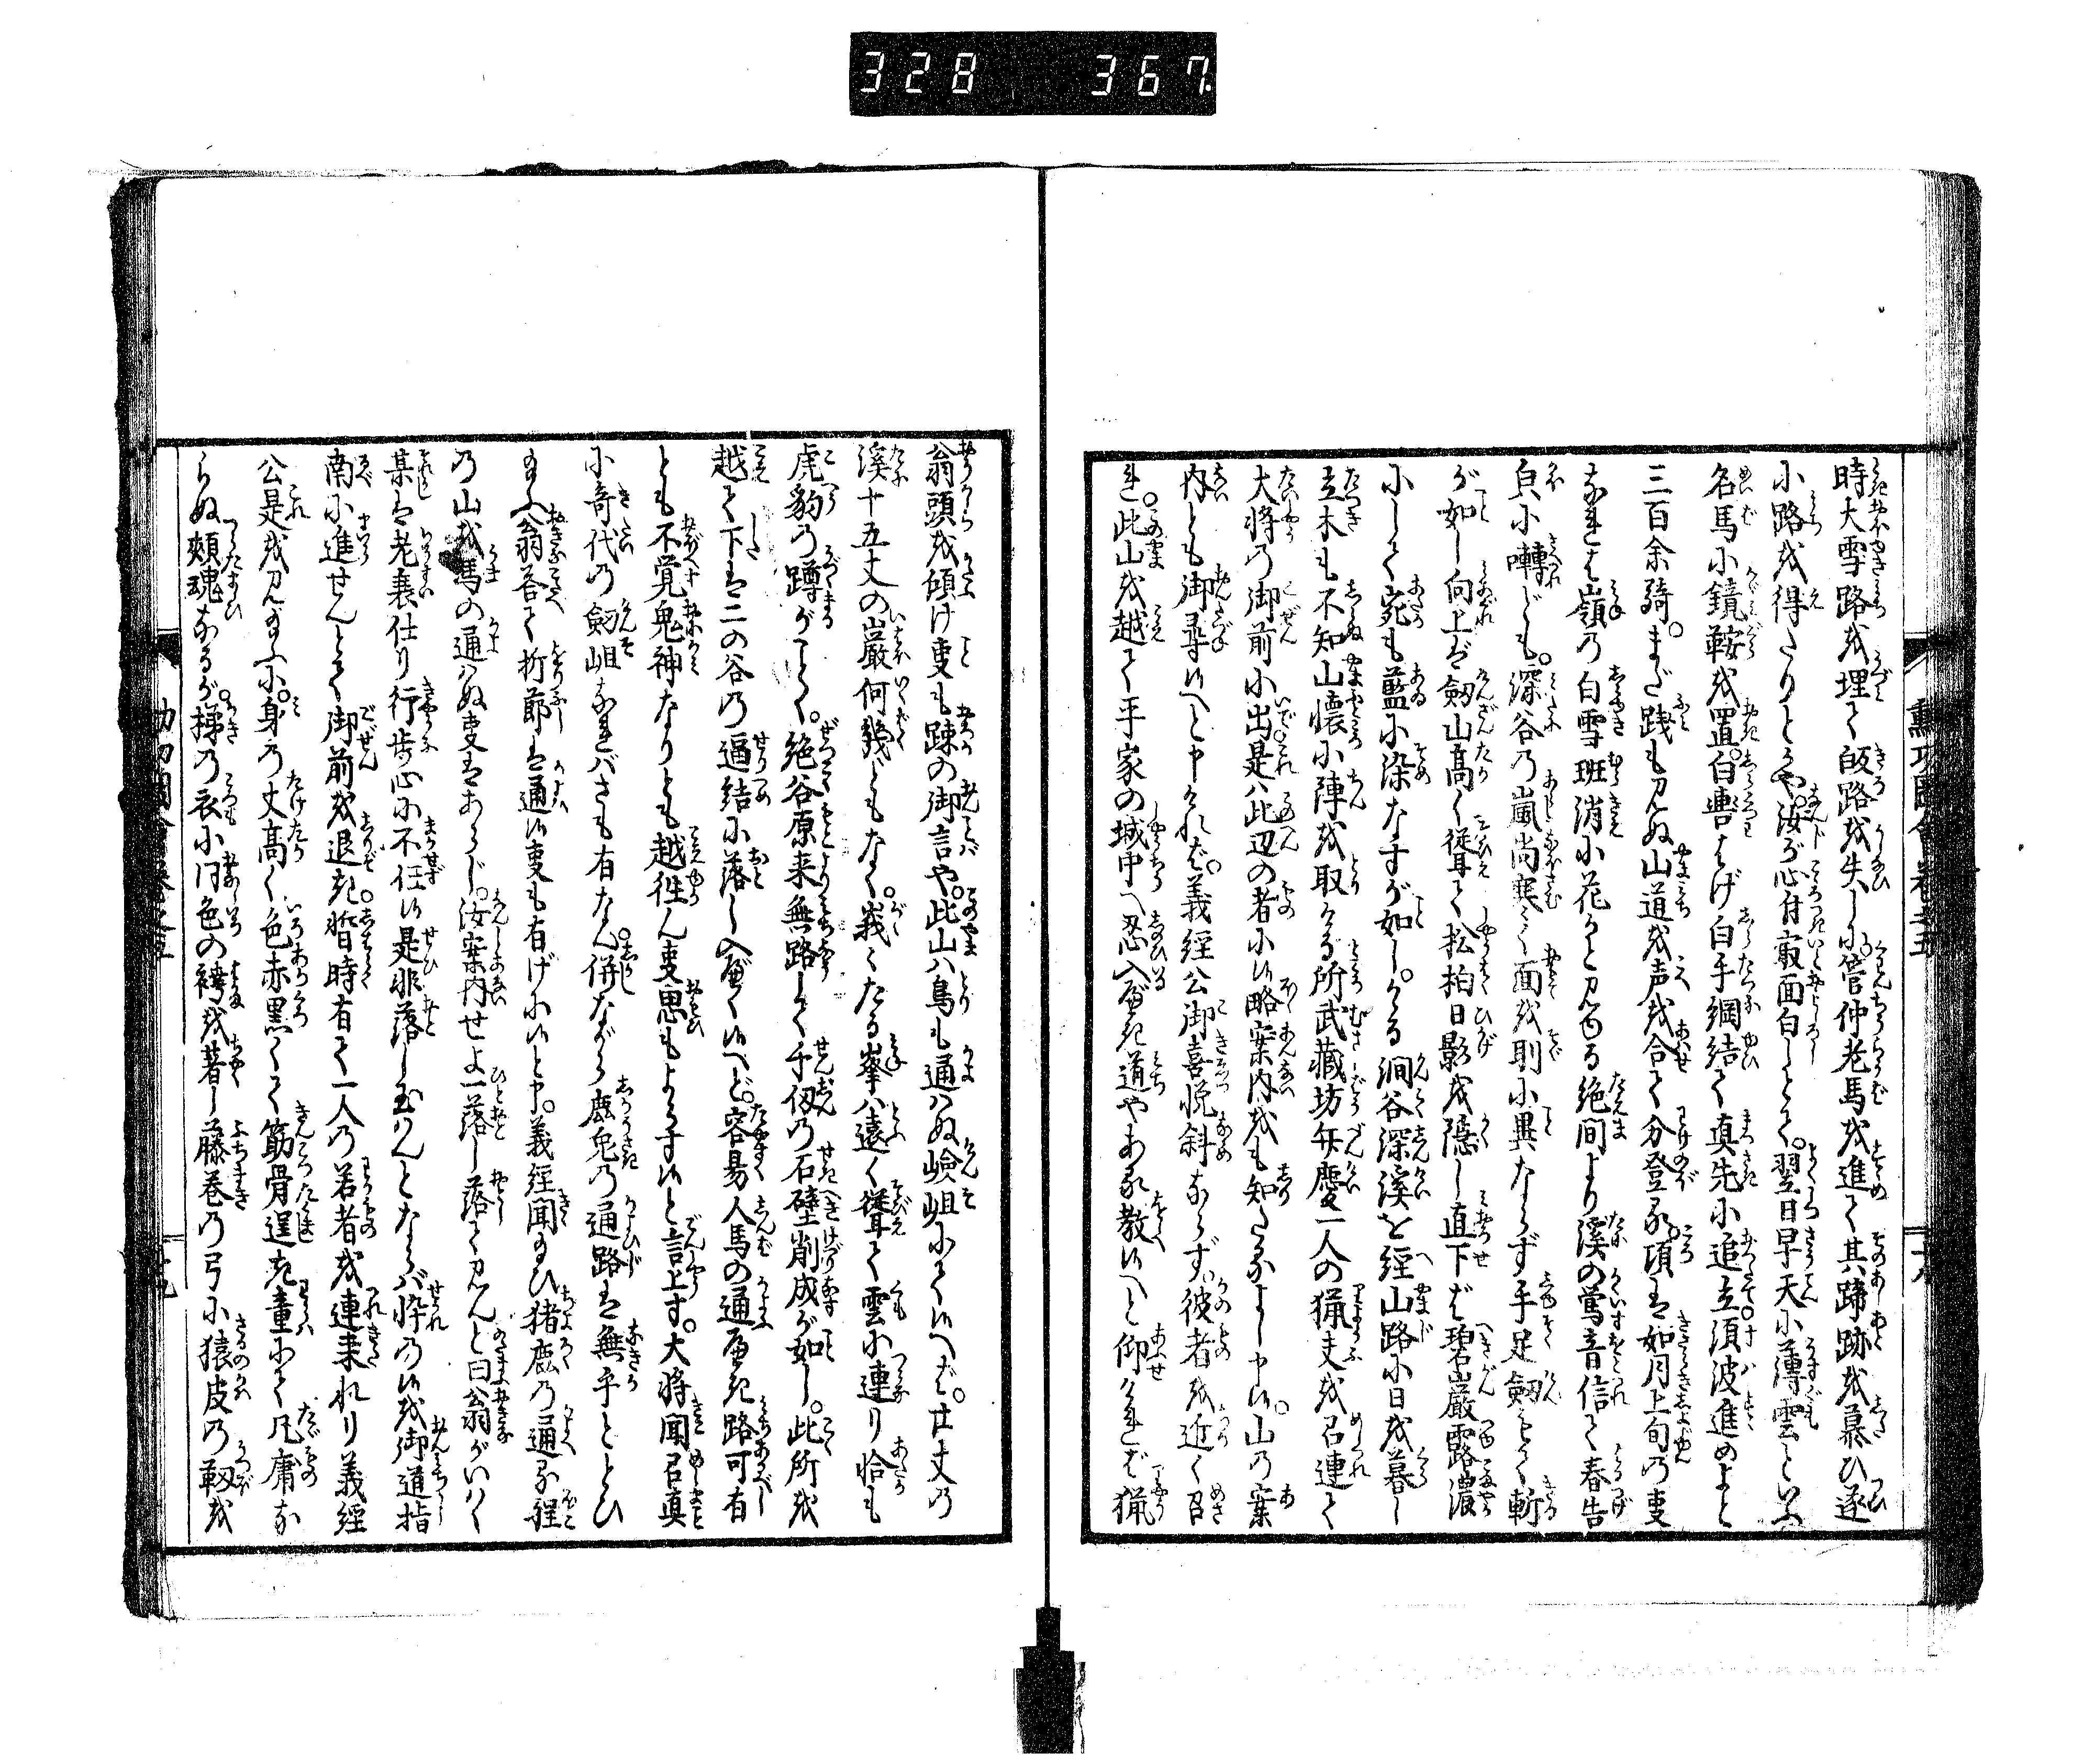 328 367
時大雪路を埋て皈路を失ひしに管仲老馬を進て其蹄跡を慕ひ遂
に路を得たりとかや汝が心付最面白しとて翌日早天に薄雲といふ
名馬に鏡鞍を置白轡はげ白手綱結て真先に追立須波進めよと
三百余騎まだ践も見ぬ山道を声を合て分登る頃は如月上旬の事
なれば嶺の白雪班消に花かと見ゆる絶間より渓の鴬音信て春告
㒵に囀ども深谷の嵐尚寒く面を刞に異ならず手足剱もて斬
が如し向上ば剱山高く聳て松柏日影を隠し直下ば碧巌露濃
にして宛も藍に染なすが如しかゝる澗谷深渓を経山路に日を暮し
立木も不知山懐に陣を取ける所武蔵坊弁慶一人の猟夫を召連て
大将の御前に出是ハ此辺の者に候略案内をも知たるよし申候山の案
内とも御尋候へと申けれバ義経公御喜悦斜ならず彼者を近く召
れ此山を越て平家の城中へ忍入べき道やある教候へと仰ければ猟
翁頭を傾け事も疎の御言や此山ハ鳥も通ハぬ嶮岨にて候へば廿丈の
渓十五丈の巌何幾ともなく峩々たる峯ハ遠く聳て雲に連り恰も
虎豹の蹲がごとく絶谷原来無路して千仭の石壁削成が如し此所を
越て下は二の谷の逼結に落し入べく候へど容易人馬の通べき路可有
とも不覚鬼神なりとも越徃ん事思もよらず候と言上す大将聞召真
に奇代の剱岨なれバさも有なん併ながら鹿兎の通路は無乎ととひ
給ふ翁答て折節は通候事も有げに候と申義経聞給ひ猪鹿の通る程
の山を馬の通ハぬ事はあらじ汝案内せよ一落し落て見んと曰翁がいはく
某は老衰仕り行歩心に不任候是非落し玉はんとならバ忰の候を御道指
南に進せんとて御前を退き暫時有て一人の若者を連来れり義経
公是を見給ふに身の丈高く色赤黒くて筋骨逞き童にて凡庸な
らぬ頬魂なるが梯の衣に同色の袴を著し藤巻の弓に猿皮の靭を